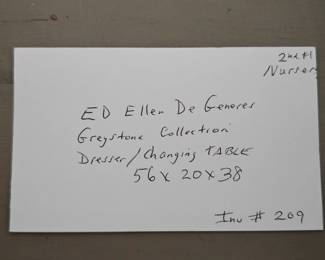 2nd Fl
Nursery
ED Ellen De Generes
Greystone Collection
Dresser/Changing TABLE
56 x 20 x 38
Inv # 209